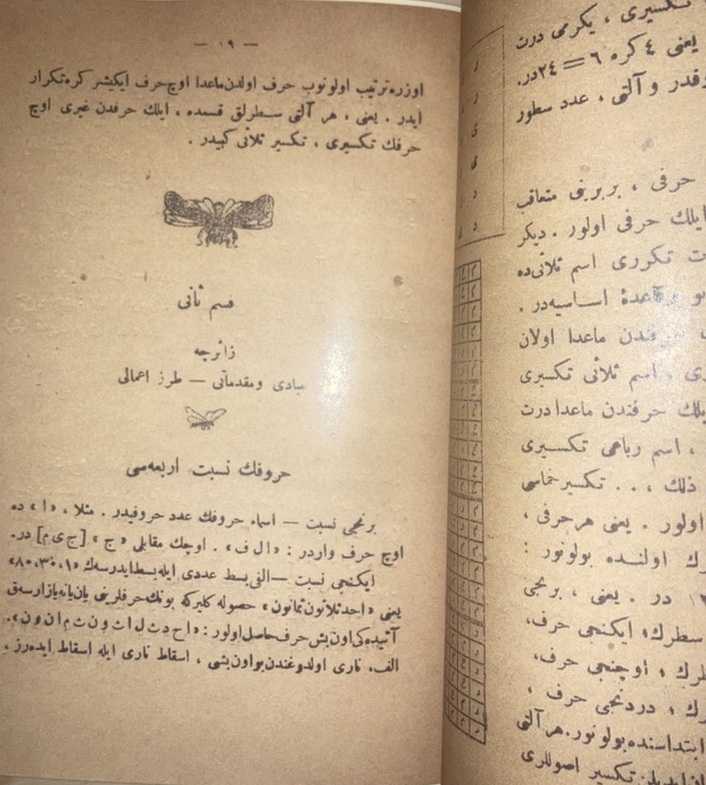 — ١٩ —
اوزره ترتیب اولونوب حرف اولدن ماعدا اوچ حرف ایکیشر کره تکرار
ایدر . یعنی ، هر آلتی سطرلق قسمده ، ایلك حرفدن غیری اوچ
حرفك تکسیری ، تکسیر ثلاثی کبیدر .
قسم ثانی
زائرجه
مبادی ومقدماتی — طرز اعمالی
حروفك نسبت اربعه‌سی
برنجی نسبت — اسماء حروفك عدد حروفیدر . مثلا ، «ا» ده
اوچ حرف واردر : «ال ف» . اوچك مقابلی «ج» [ج ی م] در.
ایکنجی نسبت — الفی بسط عددی ایله بسط ایدرسه‌ك «٨٠،٣٠،١»
یعنی «احد ثلاثون ثمانون» حصوله کلیرکه بونك حرفلرینی یان یانه یازارسه‌ق
آتیده‌کی اون بش حرف حاصل اولور : «ا ح د ث ل ا ث و ن ث م ا ن و ن».
الف، ناری اولدوغندن بو اون بشی ، اسقاط ناری ایله اسقاط ایده‌رز ،
تکسیری ، یکرمی درت
یعنی ٤ کره ٦ = ٢٤ در.
قدر و آلتی ، عدد سطور
حرفی ، بربرینی متعاقب
ایلك حرفی اولور . دیکر
تکرری اسم ثلاثی‌ده
قاعدهٔ اساسیه‌در .
حرفدن ماعدا اولان
اسم ثلاثی تکسیری
یلك حرفندن ماعدا درت
، اسم رباعی تکسیری
ذلك ، . . . تکسیر خماسی
اولور . یعنی هر حرفی ،
رك اولنده بولونور :
در . یعنی ، برنجی
سطرك ؛ ایکنجی حرف،
طرك ؛ اوچنجی حرف،
رك ؛ دردنجی حرف ،
ابتداسنده بولونور. هر آلتی
تکسیر اصوللری